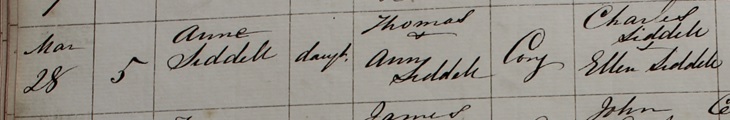 Mar
28
5
Anne
Siddell
daught.
Thomas
&
Ann
Siddell
Cory
Charles
Siddell
&
Ellen Siddell
James
John